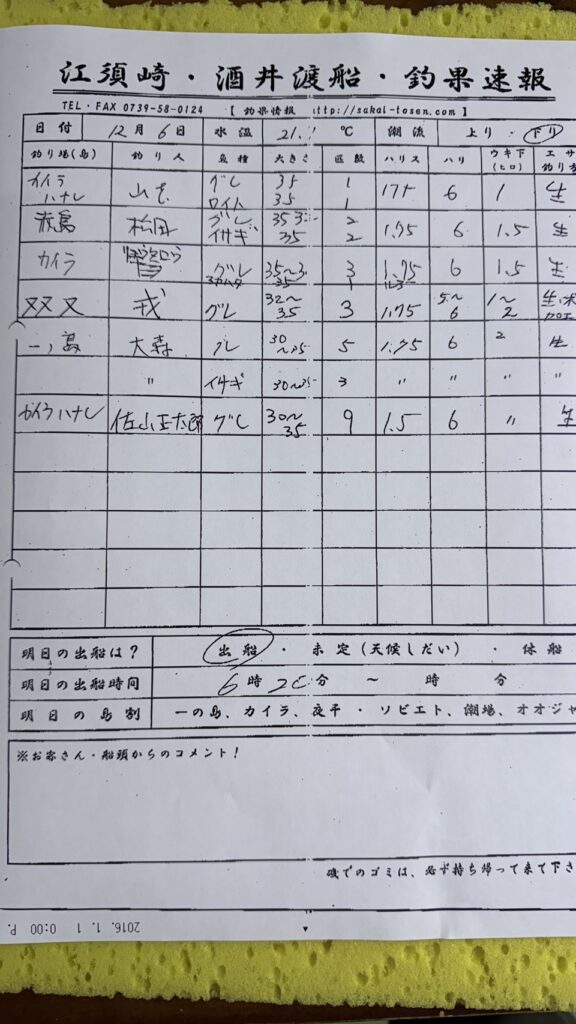 江須崎・酒井渡船・釣果速報
TEL・FAX 0739-58-0124 【 釣果情報 ttp://sakai-tosen.com 】
日付 12月6日 水温 21. ℃ 潮流 上り・下り
釣り場(島) 釣り人 魚種 大きさ 匹数 ハリス ハリ ウキ下(ヒロ) エサ 釣り方
カイラ ハナレ グレ 35 1 1.75 6 1 生
35 1
松田 グレ 35 2 1.75 6 1.5 生
イサギ 35 2
カイラ グレ 35~3 3 1.75 6 1.5 生
35 1
双叉 戎 グレ 32~35 3 1.75 5~6 1~2 生
一ノ島 大森 グレ 30~35 5 1.75 6 2 生
〃 イサギ 30~35 3 〃 〃 〃 〃
カイラハナレ 佐山正太郎 グレ 30~35 9 1.5 6 〃 生
明日の出船は? 出船 ・ 未定(天候しだい) ・ 休船
明日の出船時間 6時20分 ~ 時 分
明日の島割 一の島、カイラ、夜干・ソビエト、潮場、オオジャ
※お客さん・船頭からのコメント!
磯でのゴミは、必ず持ち帰って来て下さ
2016. 1. 1 0:00 P.